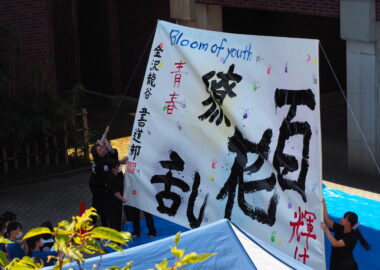 Bloom of youth
輝け
百花繚乱
青春
金沢龍谷 書道部